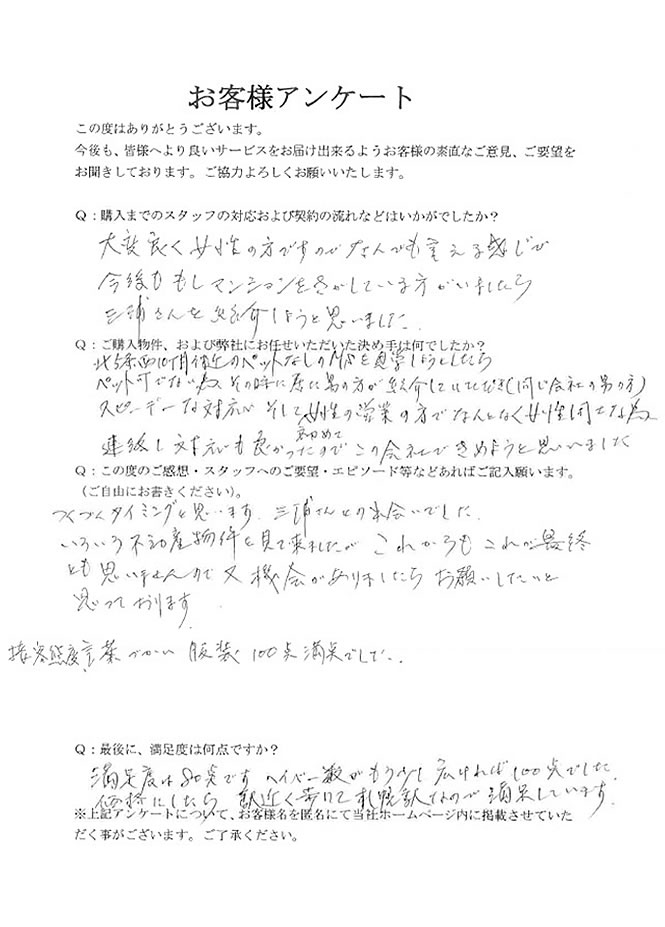 お客様アンケート
この度はありがとうございます。
今後も、皆様へより良いサービスをお届け出来るようお客様の素直なご意見、ご要望を
お聞きしております。ご協力よろしくお願いいたします。
Q：購入までのスタッフの対応および契約の流れなどはいかがでしたか？
大変良く女性の方ですのでなんでも言える感じで
今後ももしマンションをさがしている方がいましたら
三浦さんを紹介しようと思いました
Q：ご購入物件、および弊社にお任せいただいた決め手は何でしたか？
北5条西10丁目付近のペットなしの を見学しようとしたら
ペット可でない為 その時に居た男の方が紹介していただき(同じ会社の男の方)
スピーデーな対応が そして女性の営業の方でなんとなく女性同士な為
連絡し対応も良かったので初めてこの会社できめようと思いました
Q：この度のご感想・スタッフへのご要望・エピソード等などあればご記入願います。
（ご自由にお書きください）。
つくづくタイミングと思います。三浦さんとの出会いでした。
いろいろ不動産物件を見て来ましたが これからもこれが最終
とも思いませんので又機会がありましたらお願いしたいと
思っております。
接客態度言葉づかい 服装 100点満点でした。
Q：最後に、満足度は何点ですか？
満足度は80点です がもう少し広ければ100点でした
価格にしたら 駅近く歩いて札幌駅なので満足しています。
※上記アンケートについて、お客様名を匿名にて当社ホームページ内に掲載させていた
だく事がございます。ご了承ください。